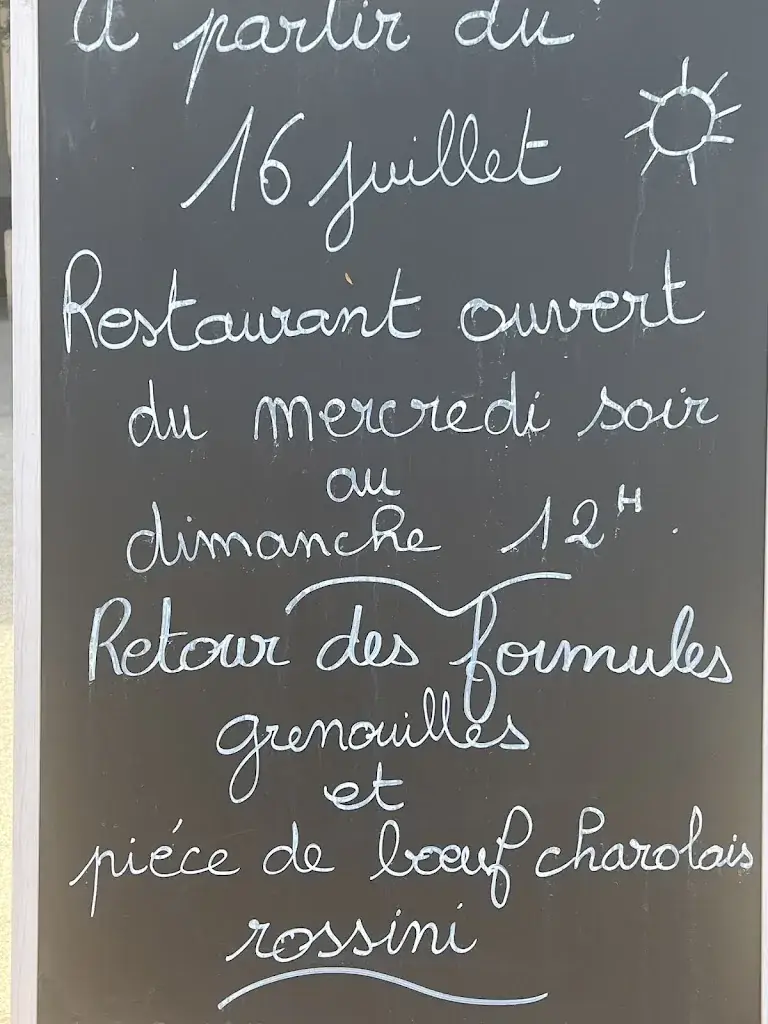 A partir du
16 juillet
Restaurant ouvert
du mercredi soir
au
dimanche 12H.
Retour des formules
grenouilles
et
piéce de bœuf charolais
rossini